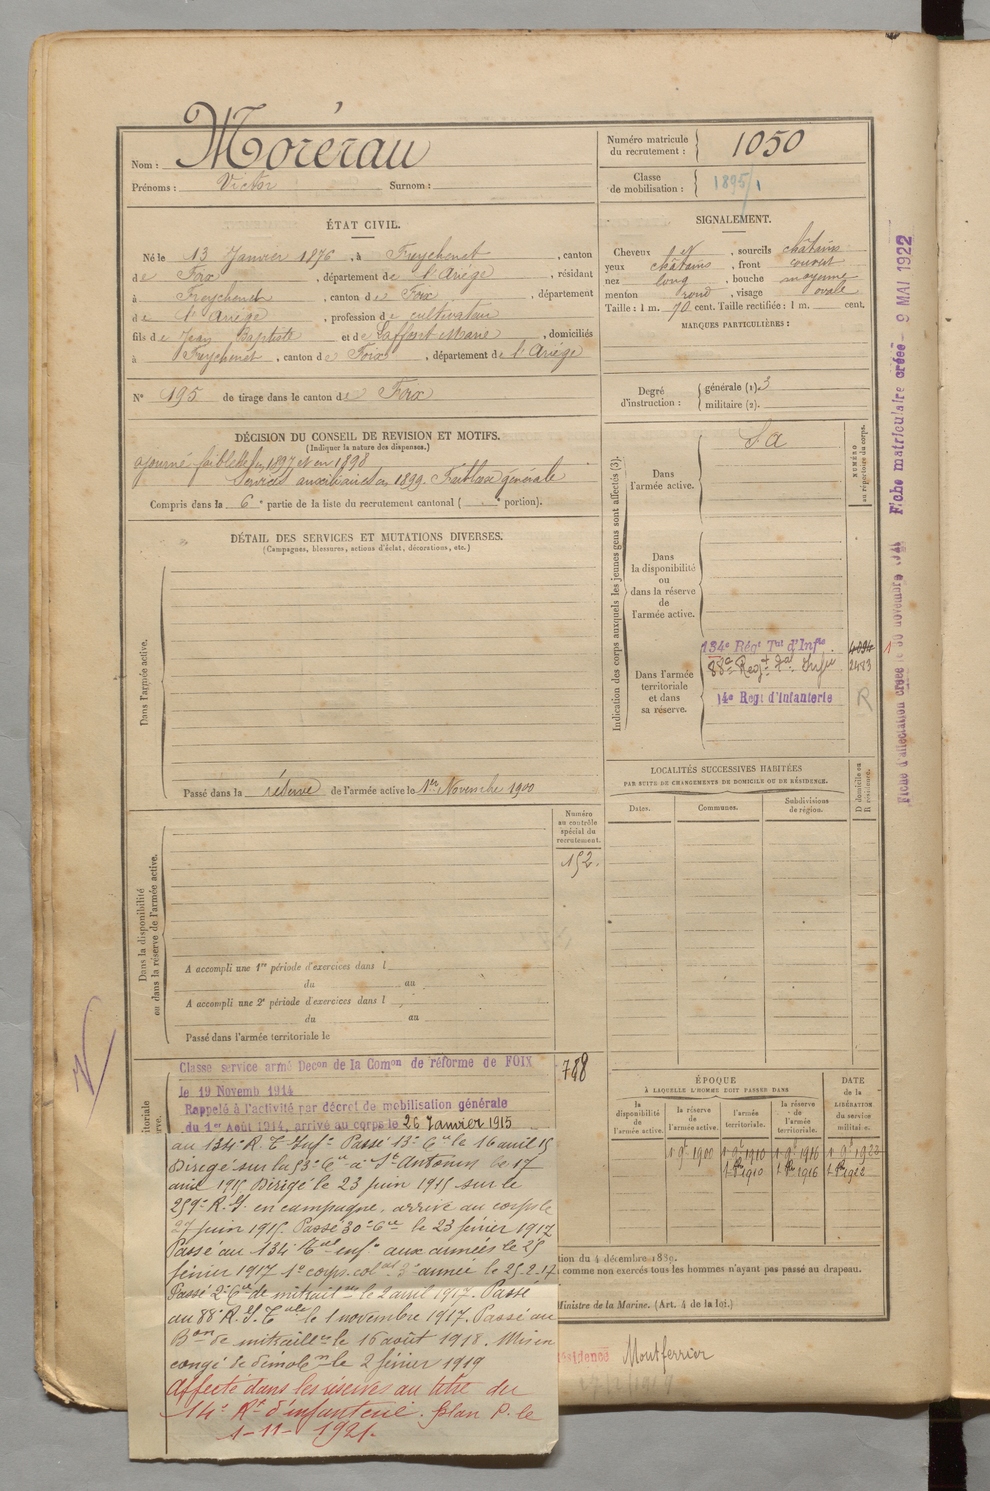 Nom : Morérau
Prénoms : Victor Surnom :
Numéro matricule du recrutement : 1050
Classe de mobilisation : 1895/1
ÉTAT CIVIL.
Né le 13 Janvier 1876, à Freychenet, canton
de Foix, département de l'Ariège, résidant
à Freychenet, canton de Foix, département
de l'Ariège, profession de cultivateur
fils de Jean Baptiste et de Laffont Marie, domiciliés
à Freychenet, canton de Foix, département de l'Ariège
N° 195 de tirage dans le canton de Foix
SIGNALEMENT.
Cheveux et, sourcils châtains
yeux châtains, front couvert
nez long, bouche moyenne
menton rond, visage ovale
Taille : 1 m. 70 cent. Taille rectifiée : 1 m. cent.
MARQUES PARTICULIÈRES :
Degré d'instruction : générale (1). 3
militaire (2).
DÉCISION DU CONSEIL DE REVISION ET MOTIFS.
(Indiquer la nature des dispenses.)
ajourné faiblesse en 1897 et en 1898
Services auxiliaires en 1899. Faiblesse générale
Compris dans la 6e partie de la liste du recrutement cantonal ( e portion).
DÉTAIL DES SERVICES ET MUTATIONS DIVERSES.
(Campagnes, blessures, actions d'éclat, décorations, etc.)
Dans l'armée active.
Passé dans la réserve de l'armée active le 1er Novembre 1900
Indication des corps auxquels les jeunes gens sont affectés (3).
NUMÉRO au répertoire du corps.
Dans l'armée active. S a
Dans la disponibilité ou dans la réserve de l'armée active.
Dans l'armée territoriale et dans sa réserve.
134e Régt Tal d'Infie.
88e Regt Tal Infie 2483
14e Regt d'Infanterie R
LOCALITÉS SUCCESSIVES HABITÉES
PAR SUITE DE CHANGEMENTS DE DOMICILE OU DE RÉSIDENCE.
Dates. Communes. Subdivisions de région. D domicile ou R résidence.
Numéro au contrôle spécial du recrutement.
152.
Dans la disponibilité ou dans la réserve de l'armée active.
A accompli une 1re période d'exercices dans l
du au
A accompli une 2e période d'exercices dans l
du au
Passé dans l'armée territoriale le
788
Classe service armé Decon de la Comon de réforme de FOIX
le 19 Novemb 1914
Rappelé à l'activité par décret de mobilisation générale
du 1er Août 1914, arrivé au corps le 26 Janvier 1915
au 134e R. T. Infie Passé 13e Cie le 16 avril 15
Dirigé sur la 53e Cie à St Antonin le 17
avril 1915 Dirigé le 23 juin 1915 sur le
259e R. I. en campagne, arrivé au corps le
27 juin 1915. Passé 30e Cie le 23 février 1917
Passé au 134e Tal enfie aux armées le 25
février 1917 1e corps col al 3e armée le 25-2-17
Passé 2e Cie de mitraill le 2 avril 1917. Passé
au 88e R. I. Tale le 1 novembre 1917. Passé au
Bon de mitraille le 16 août 1918. Mis en
congé de démobon le 2 février 1919
Affecté dans les réserves au titre du
14e Rt d'infanterie. plan P. le
1-11-1921.
ÉPOQUE
À LAQUELLE L'HOMME DOIT PASSER DANS
la disponibilité de l'armée active. la réserve de l'armée active. l'armée territoriale. la réserve de l'armée territoriale.
DATE de la LIBÉRATION du service militaire.
1 9b 1900 1 9b 1910 1 9b 1916 1 9b 1922
1910 1916 1922
tion du 4 décembre 1889.
comme non exercés tous les hommes n'ayant pas passé au drapeau.
Ministre de la Marine. (Art. 4 de la loi.)
résidence Montferrier
Fiche matriculaire créée 9 MAI 1922
Fiche d'affectation créée le 30 novembre